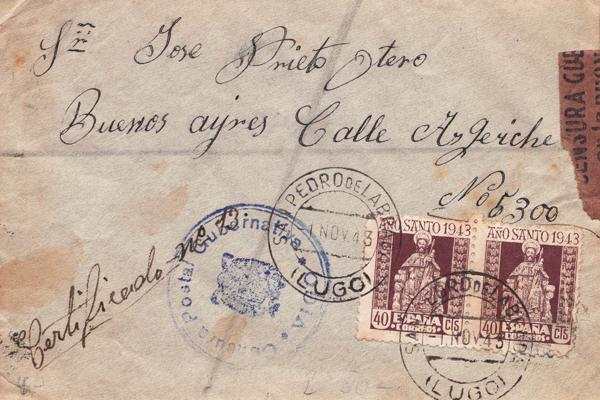 Sr. Jose Prieto Otero
Buenos ayres Calle Azgeiche
No 5300
CENSURA GUB
Certificado no 73.
Censura Postal Gubernativa
SAN PEDRO DE LABR
-1 NOV 43
(LUGO)
AÑO SANTO 1943
40 ESPAÑA CTS
CORREOS
AÑO SANTO 1943
40 ESPAÑA CTS
CORREOS
-1 NOV 43
(LUGO)